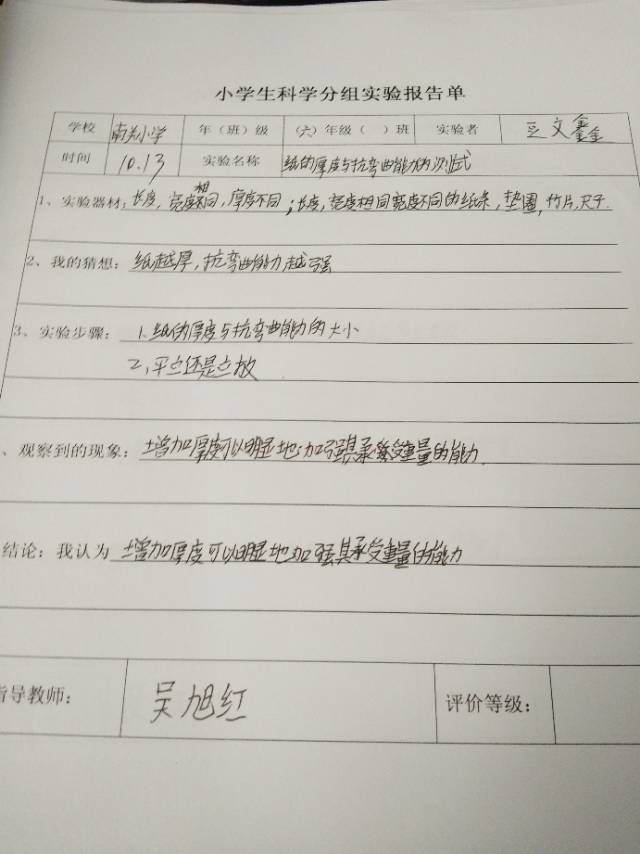 小学生科学分组实验报告单
学校 南关小学 年（班）级 （六）年级（ ）班 实验者 豆文鑫
时间 10.13 实验名称 纸的厚度与抗弯曲能力的测试
1、实验器材：长度，宽度相同，厚度不同；长度，宽度相同宽度不同的纸条，垫圈，竹片，尺子.
2、我的猜想：纸越厚，抗弯曲能力越强
3、实验步骤： 1.纸的厚度与抗弯曲能力的大小
2,平立还是立放
、观察到的现象：增加厚度可以明显地加强其承受重量的能力.
结论：我认为 增加厚度可以明显地加强其承受重量的能力
指导教师： 吴旭红 评价等级：